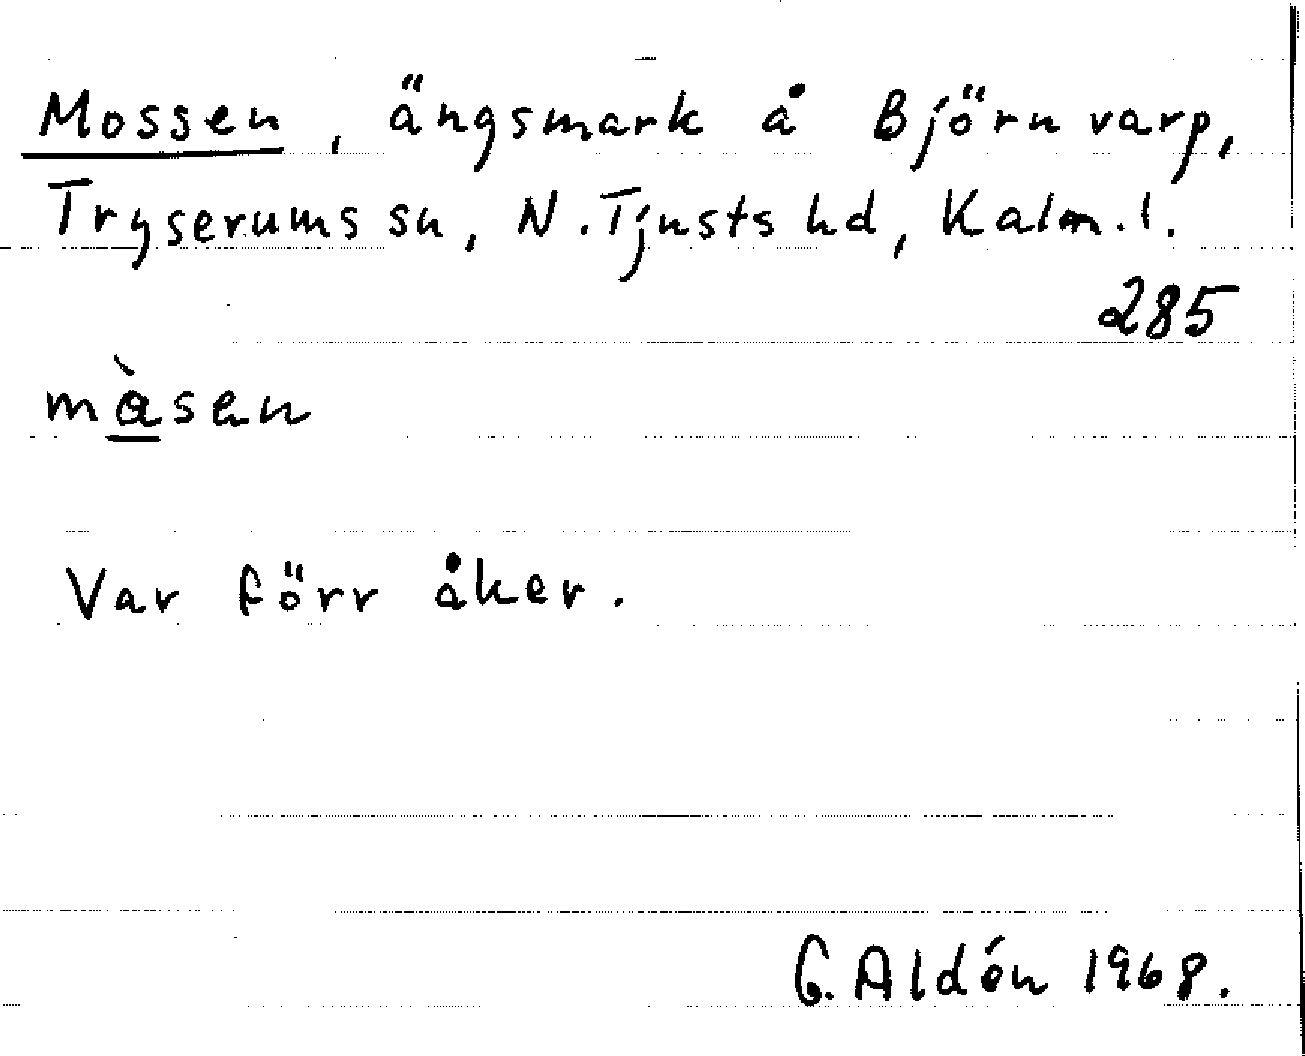 Mossen, ängsmark å Björnvarp,
Tryserums sn, N. Tjusts hd, Kalm. l.
285
màsen
Var förr åker.
G. Aldén 1968.